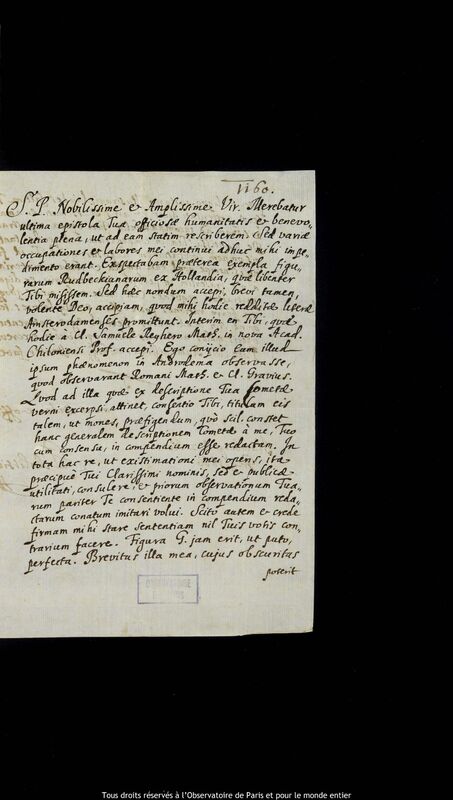 1160.
S. P. Nobilissime & Amplissime Vir. Merebatur
ultima epistola Tua officiosæ humanitatis & benevo-
lentiæ plena, ut ad eam statim rescriberem. Sed variæ
occupationes & labores mei continui adhuc mihi impe-
dimento erant. Exspectabam præterea exempla figu-
rarum Rudbeckianarum ex Hollandia, quæ libenter
Tibi misissem. Sed hæc nondum accepi, brevi tamen,
volente Deo, accipiam, quod mihi hodie redditæ literæ
Amsterodamenses promittunt. Interim en Tibi, quod
hodie a Cl. Samuele Reyhero Math. in nova Acad.
Chiloniensi Prof. accepi. Ego conjicio Eum illud
ipsum phænomenon in Andromeda observasse,
quod observarant Romani Math. & Cl. Gravius.
Quod ad illa quæ ex descriptione Tua Cometæ
verni excerpsi, attinet, consentio Tibi, titulum eis
talem, ut mones, præfigendum, quo scil. constet
hanc generalem descriptionem Cometæ à me, Tuo
cum consensu, in compendium esse redactam. In
tota hac re, ut existimationi mei operis, ita
præcipuè Tui Clarissimi nominis, sed & publicæ
utilitati, consulere, & priorum observationum Tua-
rum pariter Te consentiente in compendium reda-
ctarum conatum imitari volui. Scito autem & crede
firmam mihi stare sententiam nil Tuis votis con-
trarium facere. Figura G. jam erit, ut puto,
perfecta. Brevitas illa mea, cujus obscuritas
poterit
OBSERVATOIRE
Tous droits réservés à l'Observatoire de Paris et pour le monde entier